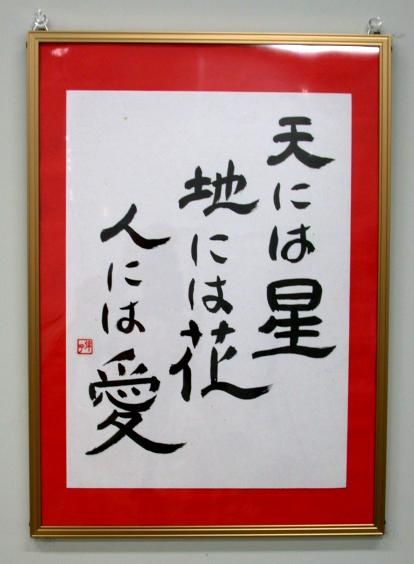 天には星
地には花
人には愛